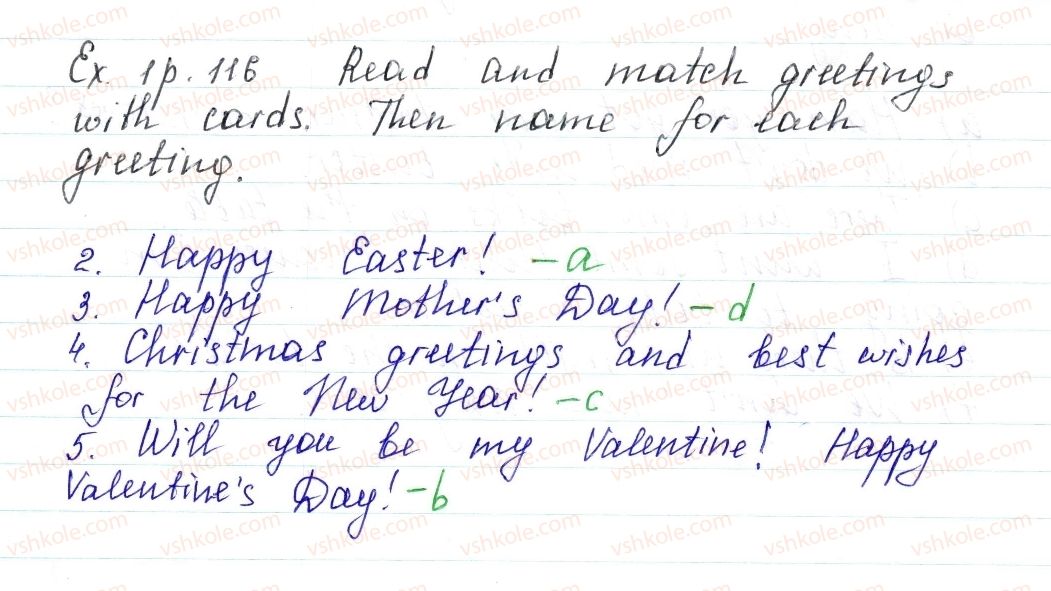 Ex. 1 p. 116 Read and match greetings
with cards. Then name for each
greeting.
2. Happy Easter! - a
3. Happy Mother's Day! - d
4. Christmas greetings and best wishes
for the New Year! - c
5. Will you be my Valentine! Happy
Valentine's Day! - b